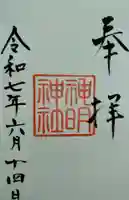 奉拝
神明神社
令和七年六月十四日